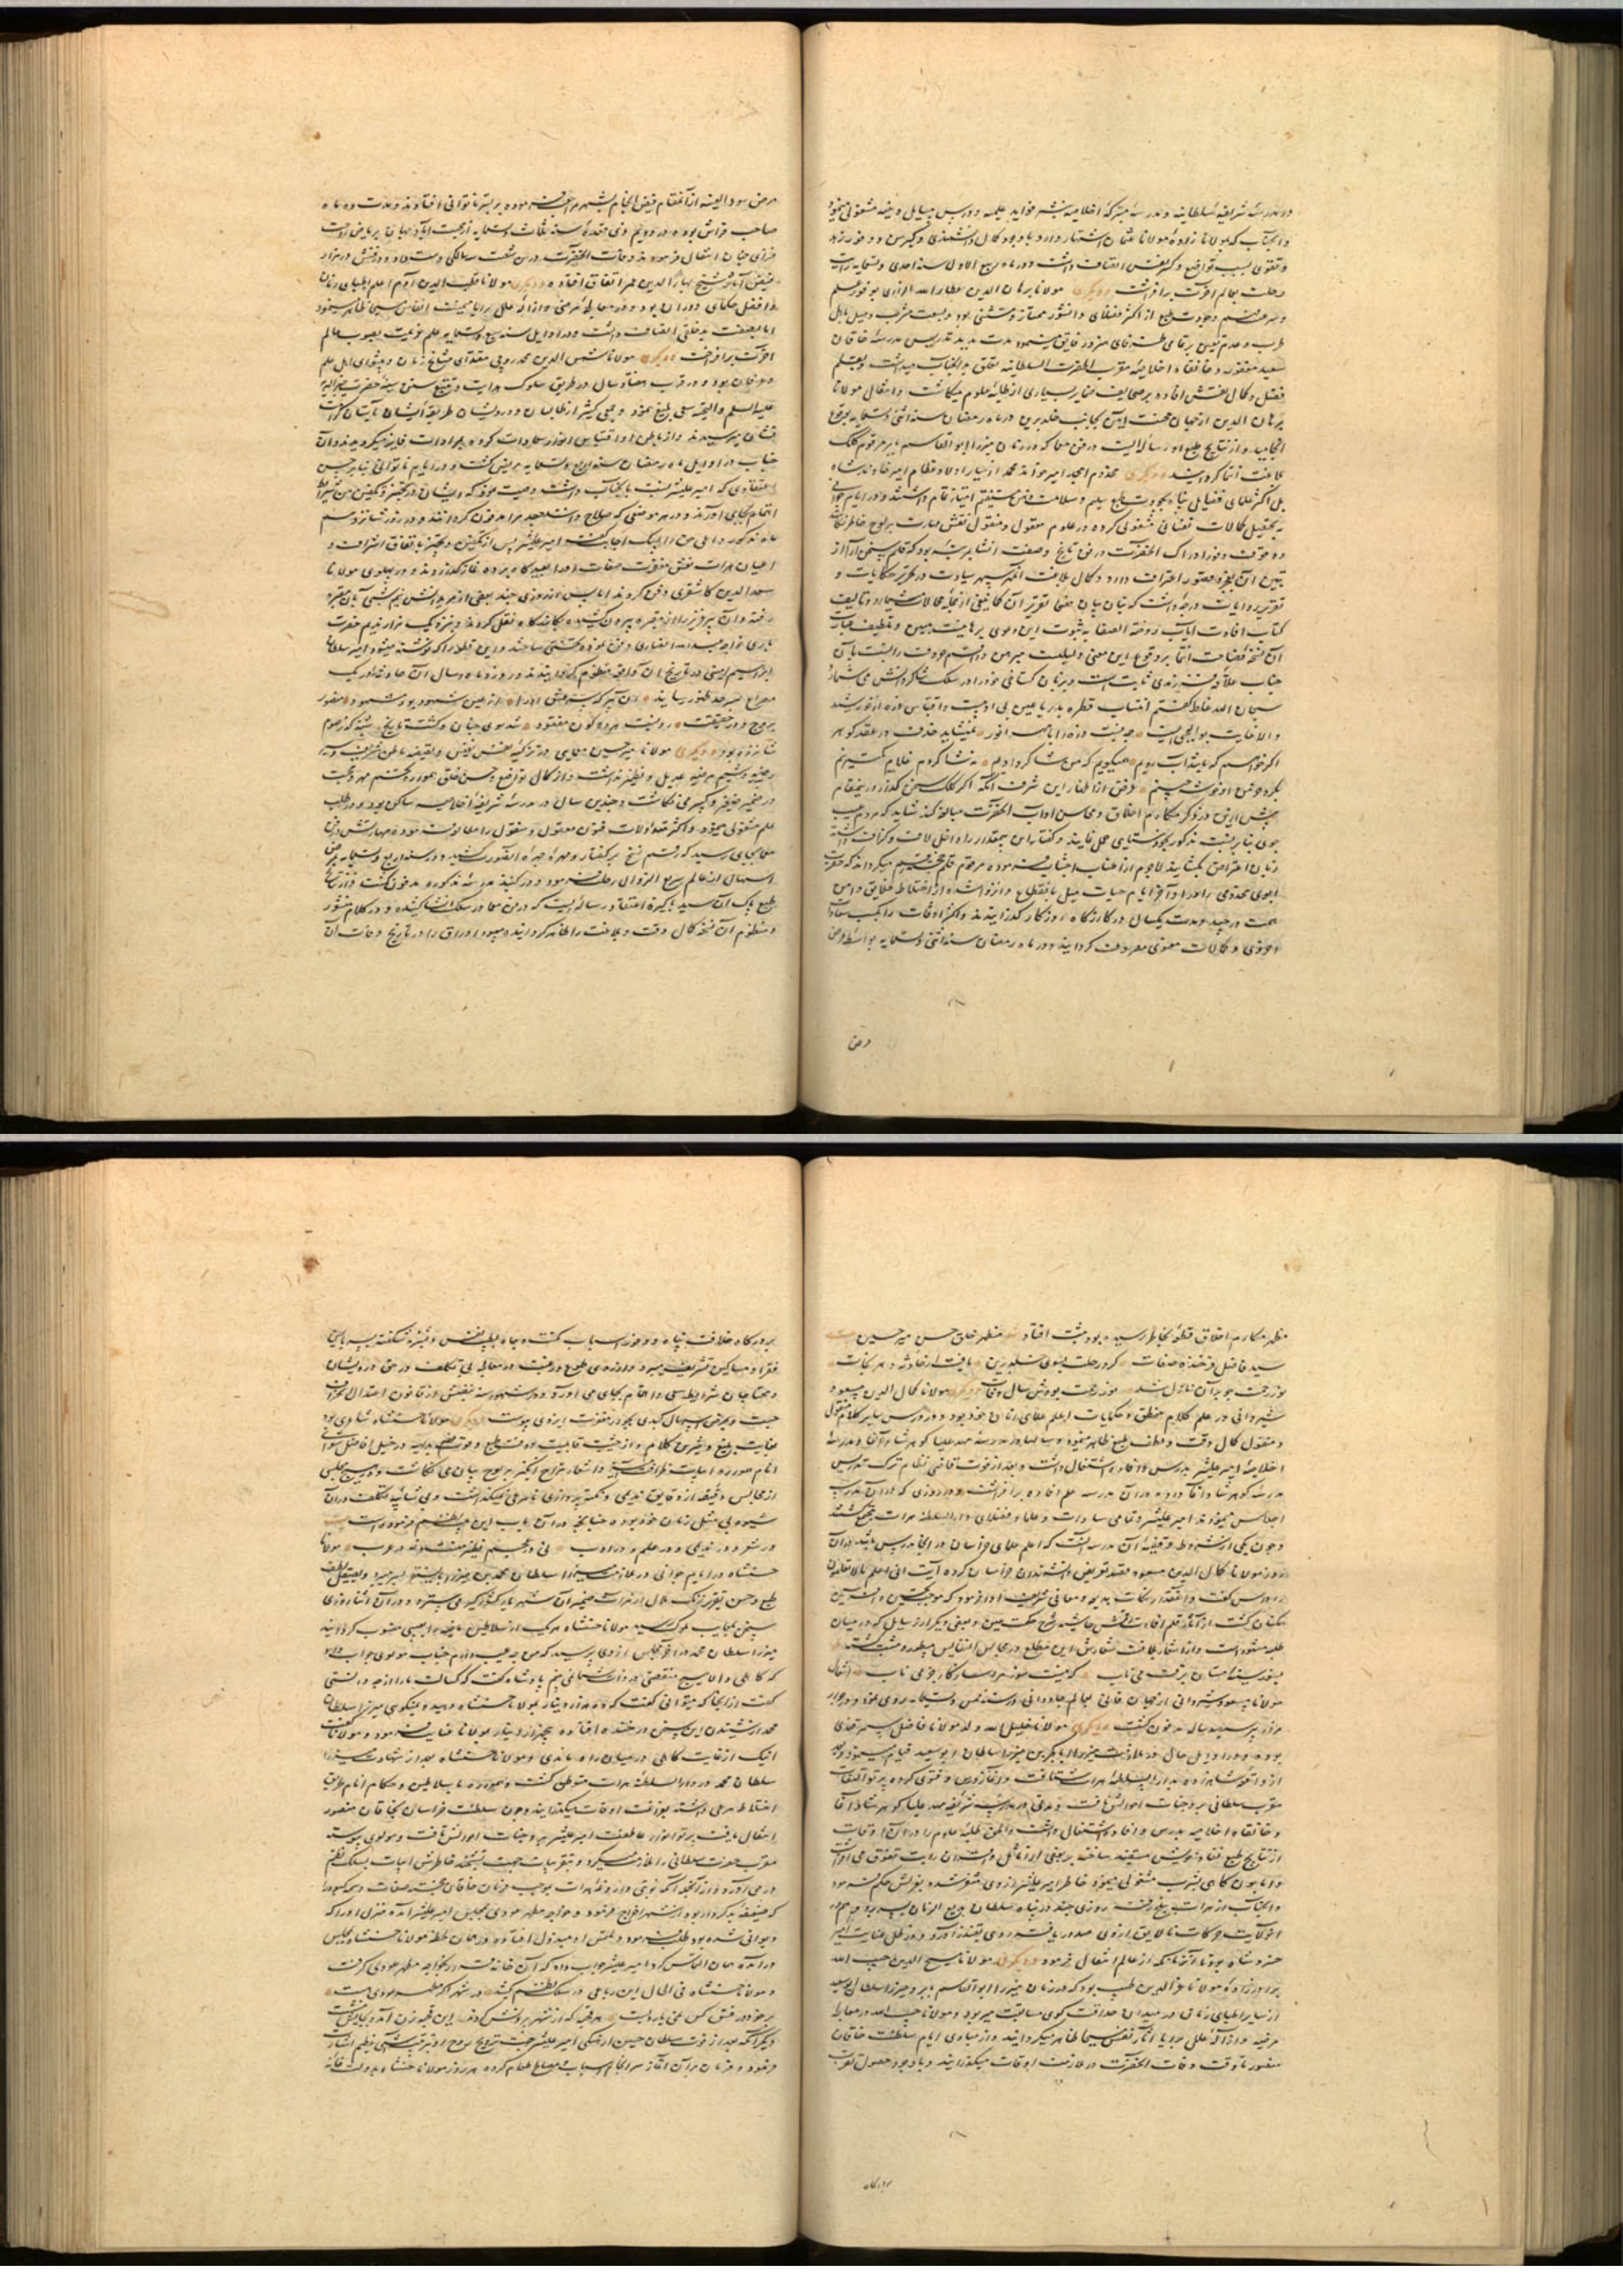 در مدرسه شریفه سلطانیه و مدرسه متبرکه اخلاصیه بنشر فواید علمیه و درس مسایل دینیه مشغولی مینمود
و آنجناب که مولانا زاده مولانا عثمان اشتهار دارد باوجود کمال دانشمندی و کبر سن و وفور زهد
و تقوی بسبب تواضع و کسر نفس اتصاف داشت و در ماه ربیع الاول سنه احدی و تسعمایه رایت
رحلت بعالم آخرت برافراشت و دیگری مولانا برهان الدین عطاء الله الرازی بوفور علم
طرب و عدم تعین بر تمامی مدت مدید تدریس مدرسه خاقان
سعید مغفور و خانقاه اخلاصیه مقرب الحضرت السلطانیه تعلق به آنجناب میداشت و بقلم
فضل و کمال نقش افاده بر صحایف ضمایر بسیاری از طلبه علوم میکاشت و انتقال مولانا
برهان الدین از جهان محنت آیین بجانب خلد برین در ماه رمضان سنه اثنی و تسعمایه بوقوع
انجامید و از نتایج طبع او رساله ایست در فن معما که در زمان میرزا ابو القاسم بابر مرقوم کلک
بلاغت انتما گردانیده و دیگری مخدوم امجد امیر خواند محمد از سایر اولاد عظام امیر خاوند شاه
بل اکثر علمای فضایل پناه بجودت طبع سلیم و سلامت ذهن مستقیم امتیاز تمام داشتند و در ایام جوانی
به تحصیل کمالات نفسانی مشغولی کرده در علوم معقول و منقول نقش مهارت بر لوح خاطر
و وقوف و فور ادراک آنحضرت در فن تاریخ و صفت انشا بمرتبه بود که قلم سخن آرا از
تبیین آن بعجز و قصور اعتراف دارد و کمال بلاغت آنمهر سپهر سیادت در تحریر حکایات و
تقریر روایات درجه داشت که بنان بیان
کتاب افادت ایاب روضة الصفا به ثبوت این دعوی برهانیست مبین و
آن نسخه فصاحت انتما بر وقوع این معنی دلیلیست مبرهن
جناب علاوه نسبت فرزندی ثابت است و بزبان گستاخی خود را در سلک شاگردانش می شمارد
سبحان الله غلط گفتم انتساب قطره بدریا عین بی ادبیست و اقتباس ذره از خورشید
والا غایت بوالعجبیست چه نسبت ذره را با مهر انور نمیشاید خذف در عقد گوهر
اگر خواهم که یابد آب رویم همیگویم که من شاگرد اویم نه شاگردم غلامم کمتر
بگرد خرمن او خوشه چینم
پیش ازین در ذکر مکارم اخلاق و محاسن آداب آنحضرت مبالغه کند شاید که مردم عیب
جوی بنا بر نسبت مذکور بخودستایی حمل نمایند و گفتار این بیمقدار را داخل لاف و گزاف داشته
زبان اعتراض بگشایند لاجرم از اطناب اجتناب نموده مرقوم قلم میگرداند که حضرت
ابوی مخدومی را در اواخر ایام حیات میل بانقطاع و انزوا شده از اختلاط خلایق دامن
همت درچید و مدت یکسال در گازرگاه روزگار گذرانیدند و اکثر اوقات را بکسب سعادت
اخروی و کمالات معنوی مصروف گردانید و در ماه رمضان سنه اثنی و تسعمایه بواسطه عرض
مرض
مرض سود القنیه از آنمقام فیض انجام بشهر مراجعت نموده بر بستر ناتوانی افتادند و مدت ده ماه
صاحب فراش بوده در دویم ذی قعده سنه ثلاث و تسعمایه از محنت آباد جهان فانی بریاض راحت
فزای جنان انتقال فرمودند وفات آنحضرت در سن شصت سالگی دست داد و دفنش در مزار
فیض آثار شیخ بهاء الدین عمر اتفاق افتاد و دیگری مولانا قطب الدین آدم اعلم اطبای زمان
و افضل حکمای دوران بود و در معالجه مرضی و ازاله علل برایا میمنت انفاس مسیحا ظاهر مینمود
اما بصفت بدخلقی اتصاف داشت و در اوایل سنه سبع و تسعمایه علم عزیمت بصوب عالم
آخرت برافراخت و دیگری مولانا شمس الدین محمد روجی مقتدای مشایخ زمان و پیشوای اهل علم
و عرفان بود و در قرب هفتاد سال در طریق سلوک هدایت و تتبع سنن سنیه حضرت خیر البریه
علیه السلم و التحیه سعی بلیغ نمود و جمعی کثیر از طالبان و درویشان طریقه ایشان بآستان کرامت
نشان میرسیدند و از باطن او اقتباس انوار سعادات کرده بمرادات فایز میگردیدند و آن
جناب در اوایل ماه رمضان سنه اربع و تسعمایه مریض گشت و در ایام ناتوانی بنا بر حسن
اعتقادی که امیر علیشیر نسبت بآنجناب داشت وصیت نمود که ایشان در تجهیز و تکفین من شرایط
اهتمام بجای آورند و در هر موضعی که صلاح دانند مدفون گردانند و در روز شانزدهم
ماه مذکور داعی حق را لبیک اجابت گفت امیر علیشیر پس از تکفین و تجهیز باتفاق اشراف و
اعیان هرات نعش مغفرت صفات او را بعیدگاه برده نماز گذاردند و در پهلوی مولانا
سعد الدین کاشغری دفن کردند اما پس از روزی چند بعضی از مریدانش نیم شبی بآن مقبره
رفته و آن پیر عزیز را از مقبره بیرون کشیده بگازرگاه نقل کردند و نزدیک مزار قدیم حضرت
باری خواجه عبدالله انصاری دفن نمودند و این قطعه را که نوشته میشود امیر سلطان
ابراهیم امینی در تاریخ آن واقعه منظوم گردانیدند و روز و ماه و سال آن حادثه را در یک
مصراع بحد ظهور رسانید
بروح و در حقیقت شد سوی جنان و گشت تاریخ شنبه که ز صوم
شانزده بود و دیگری مولانا میر حسین معمایی در تزکیه نفس نفیس و تصفیه باطن شریف و
رضیه و شیم مرضیه عدیل و نظیر نداشت و از کمال تواضع و حسن خلق همواره تخم مهر و محبت
در ضمیر صغیر و کبیر می کاشت و چندین سال در مدرسه شریفه اخلاصیه ساکن بود و بطلب
علم مشغولی مینمود و اکثر متداولات فنون معقول و منقول را مطالعه فرموده مهارتش در فن
معما بجای رسید که رقم نسخ بر گفتار و در سنه اربع و تسعمایه بمرض
اسهال از عالم سریع الزوال رحلت نمود و در گنبد مدرسه مذکوره مدفون گشت و از نتایج
طبع پاک آن سید پاکیزه اعتقاد رساله ایست که در فن معما در سلک انشا کشیده و در کلام منثور
و منظوم آن نسخه کمال دقت و بلاغت را ظاهر گردانیده مسود اوراق را در تاریخ وفات آن
مظهر مکارم اخلاق قطعه بخاطر رسیده بود ثبت افتاد مظهر خلق حسن میر حسین
سید فاضل فرخنده صفات کرد رحلت بسوی خلد برین یافت از حادثه دهر نجات
نور رحمت چو بر آن نازل شد نور رحمت بودش سال وفات و دیگری مولانا کمال الدین مسعود
شیروانی در علم کلام و منطق و حکمیات اعلم علمای زمان خود بود و در درس سایر کلام معقول
و منقول کمال دقت و لطف طبع ظاهر مینمود و سالها در مدرسه مهد علیا گوهر شاد آغا و مدرسه
اخلاصیه امیر علیشیر بدرس و افاده اشتغال داشت و بعد از فوت قاضی نظام ترک تدریس
مدرسه گوهر شاد آغا داده در آن مدرسه علم افاده برافراشت و در روزی که در آن مدرسه
اجلاس مینمودند امیر علیشیر و تمامی سادات و علما و فضلای دار السلطنه هرات مجتمع گشتند
و چون یکی از شروط وقفیه آن مدرسه آنست که اعلم علمای خراسان در آنجا مدرس باشد در آن
روز مولانا کمال الدین مسعود بقصد تعریض دانشمندان خراسان کرده آیت انی اعلم ما لا تعلمون
را درس گفت و آنقدر نکات بدیع و معانی شریف ادا فرمود که موجب تحسین و آفرین
همگنان گشت از آثار قلم افادت نقش حاشیه شرح حکمت عین و بعضی دیگر از رسایل که در میان
طلبه مشهور است و از اشعار بلاغت شعارش این مطلع در مجالس النفایس مسطور و مثبت گشته
مولانا مسعود شیروانی از جهان فانی بعالم جاودانی در سنه خمس و تسعمایه روی نمود و در جوار
مزار پیر سیصد ساله مدفون گشت و دیگری مولانا خلیل الله ولد مولانا فاضل سمرقندی
بوده و در اوایل حال در ملازمت میرزا ابا بکر بن میرزا سلطان ابو سعید قیام مینمود و بعد
از واقعه شاهزاده بدار السلطنه هرات شتافت و آغاز درس و فتوی کرده پرتو التفات
مقرب سلطانی بر وجنات احوالش تافت و مدتی در مدرسه شریفه مهد علیا گوهر شاد آغا
و خانقاه اخلاصیه بدرس و افاده اشتغال داشت و اکثر طلبه علوم را در آن اوقات
از نتایج طبع نقاد خویش مستفید ساخته بر بعضی از امثال و اقران رایت تفوق می افراشت
و اما چون گاهی بشرب مشغولی مینمود خاطر امیر علیشیر از وی متنفر شده بعزلش حکم فرمود
و آنجناب از هرات ببلخ رفت روزی چند در پناه سلطان بدیع الزمان بسر برد و هم در
آنولایت حرکات نالایق از وی صدور یافته روی بقندز آورد و در ظل عنایت امیر
خسرو شاه بود تا آنزمان که از عالم انتقال فرمود و دیگری مولانا مسیح الدین حبیب الله
برادرزاده مولانا عز الدین طبیب بود که در زمان میرزا ابو القاسم بابر و میرزا سلطان ابو سعید
از سایر اطبای زمان در میدان حذاقت گوی مسابقت میربود و مولانا حبیب الله در معالجه
مرضی و ازاله علل برایا آثار نفس مسیحا ظاهر میگردانید و از مبادی ایام سلطنت خاقان
منصور تا وقت وفات آنحضرت در ملازمت اوقات میگذرانید و باوجود حصول تقرب
بدرگاه
بدرگاه خلافت پناه و وفور اسباب مکنت و جاه بطیب نفس و بشره شگفته بسر بالین
فقرا و مساکین تشریف میبرد و از روی طوع و رغبت در معالجه بی تکلف در حق درویشان
و محتاجان شرایط سعی و اهتمام بجای می آورد و در شهور سنه نفسش از قانون اعتدال انحراف
جست و بمرض اسهال کبدی بجوار مغفرت ایزدی پیوست و دیگری مولانا حسنشاه شاعری بود
بغایت بلیغ و شیرین کلام و از حیثیت قابلیت و حدت طبع و وقوف بر بدایه در خیل افاضل شعرای
انام همواره ابیات ظرافت آمیز و اشعار مزاح انگیز بر لوح بیان می نگاشت و در هیچ مجلسی
از مجالس دقیقه از دقایق ندیمی و نکته پردازی نامرعی نمیگذاشت و بی شائبه تکلف در آن
شیوه بی مثل زمان خود بوده چنانچه در آن باب این بیت نظم فرموده است
در شعر و در ندیمی و در علم و در ادب نی در عجم نظیر منست و نه در عرب مولانا
حسنشاه در ایام جوانی در ملازمت میرزا سلطان محمد بن میرزا بایسنقر بسر میبرد و بصیقل لطف
طبع و حسن تقریر زنگ ملال از مرآت ضمیر آن شهریار کشورگیر می سترد و در آن اثنا روزی
سخن بمعایب ملوک رسید مولانا حسنشاه هر یک از سلاطین نامدار را بعیبی منسوب گردانید
میرزا سلطان محمد در آخر مجلس از وی پرسید که من چه عیب دارم جناب مولوی جواب داد
که کاهلی والا هیچ منقصتی در ذات شما نمی بینم پادشاه گفت که کسالت ما را از چه دانستی
گفت از آنجا که میتوانی گفت که ده هزار دینار بمولانا حسنشاه دهید و نمیگویی میرزا سلطان
محمد از شنیدن این سخن در خنده افتاد و پنجهزار دینار بمولانا عنایت فرمود و مولانا گفت
اینک از غایت کاهلی در میان راه ماندی و مولانا حسنشاه بعد از شهادت میرزا
سلطان محمد در دار السلطنه هرات متوطن گشت و همواره با سلاطین و حکام انام طریق
اختلاط مرعی داشته بفراغت اوقات میگذرانید و چون سلطنت خراسان بخاقان منصور
انتقال یافت پرتو انوار عاطفت امیر علیشیر بر وجنات احوالش تافت و مولوی پیوسته
مقرب حضرت سلطانی را ملازمت میکرد و بتقریبات جهت تشحیذ خاطرش ابیات بسلک نظم
در می آورد و از آنجمله آنکه نوبتی داروغه هرات بموجب فرمان خاقان خجسته صفات
ضعیفه بدکردار بود از شهر اخراج فرمود و خواجه مظهر عودی بمجلس امیر علیشیر آمده منزل او را که
دیوانی شده بود طلب نمود و ملتمس او مبذول افتاده در همان لحظه مولانا حسنشاه بمجلس
درآمده همان التماس کرد امیر علیشیر جواب داد که آن خانه بخواجه مظهر عودی گرفت
و مولانا حسنشاه فی الحال این رباعی در سلک نظم کشید در شهر اگر مظهر عودی هست
هر قحبه که از شهر برونش کردند این قحبه زن آمد و بجایش بنشست
دیگر آنکه بعد از فوت سلطان حسین ارهنگی امیر علیشیر جهت ترویح روح او بترتیب آشی عظیم اشارت
فرمود و فرمان بران آغاز سرانجام اسباب و مصالح طعام کرده هر روز مولانا حسنشاه بدولت خانه